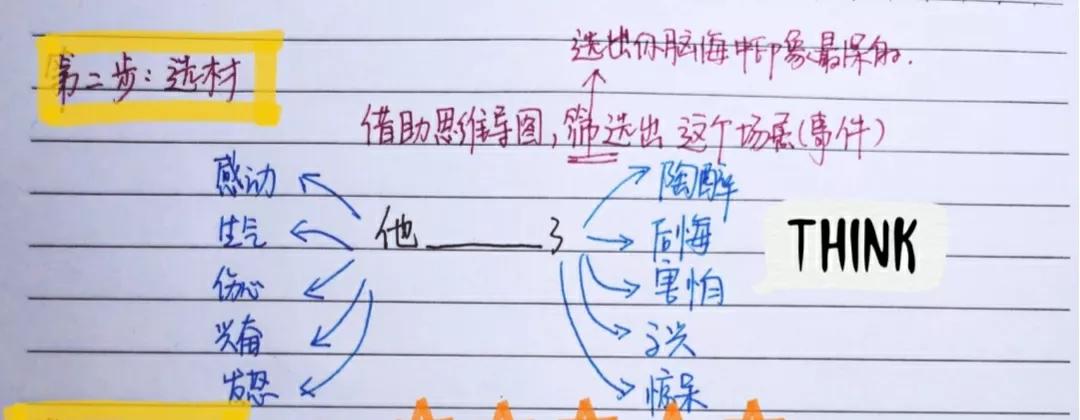 选出你脑海中印象最深的.
第二步:选材
借助思维导图,筛选出这个场景(事件)
感动
陶醉
生气
他______了
后悔
THINK
伤心
害怕
兴奋
高兴
发怒
惊呆